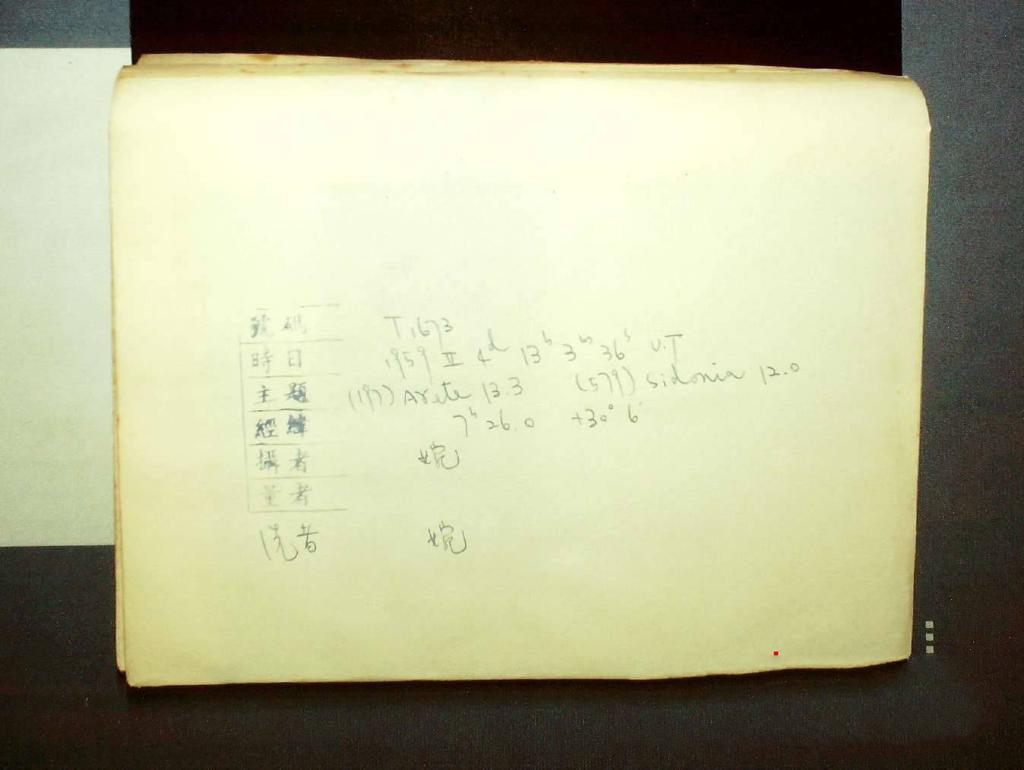 號碼 T1673
時日 1959 II 4d 13h 3m 36s U.T
主題 (197) Arete 13.3 (579) Sidonia 12.0
經緯 7h 26.0 +30° 6'
攝者 婉
量者
洗者 婉